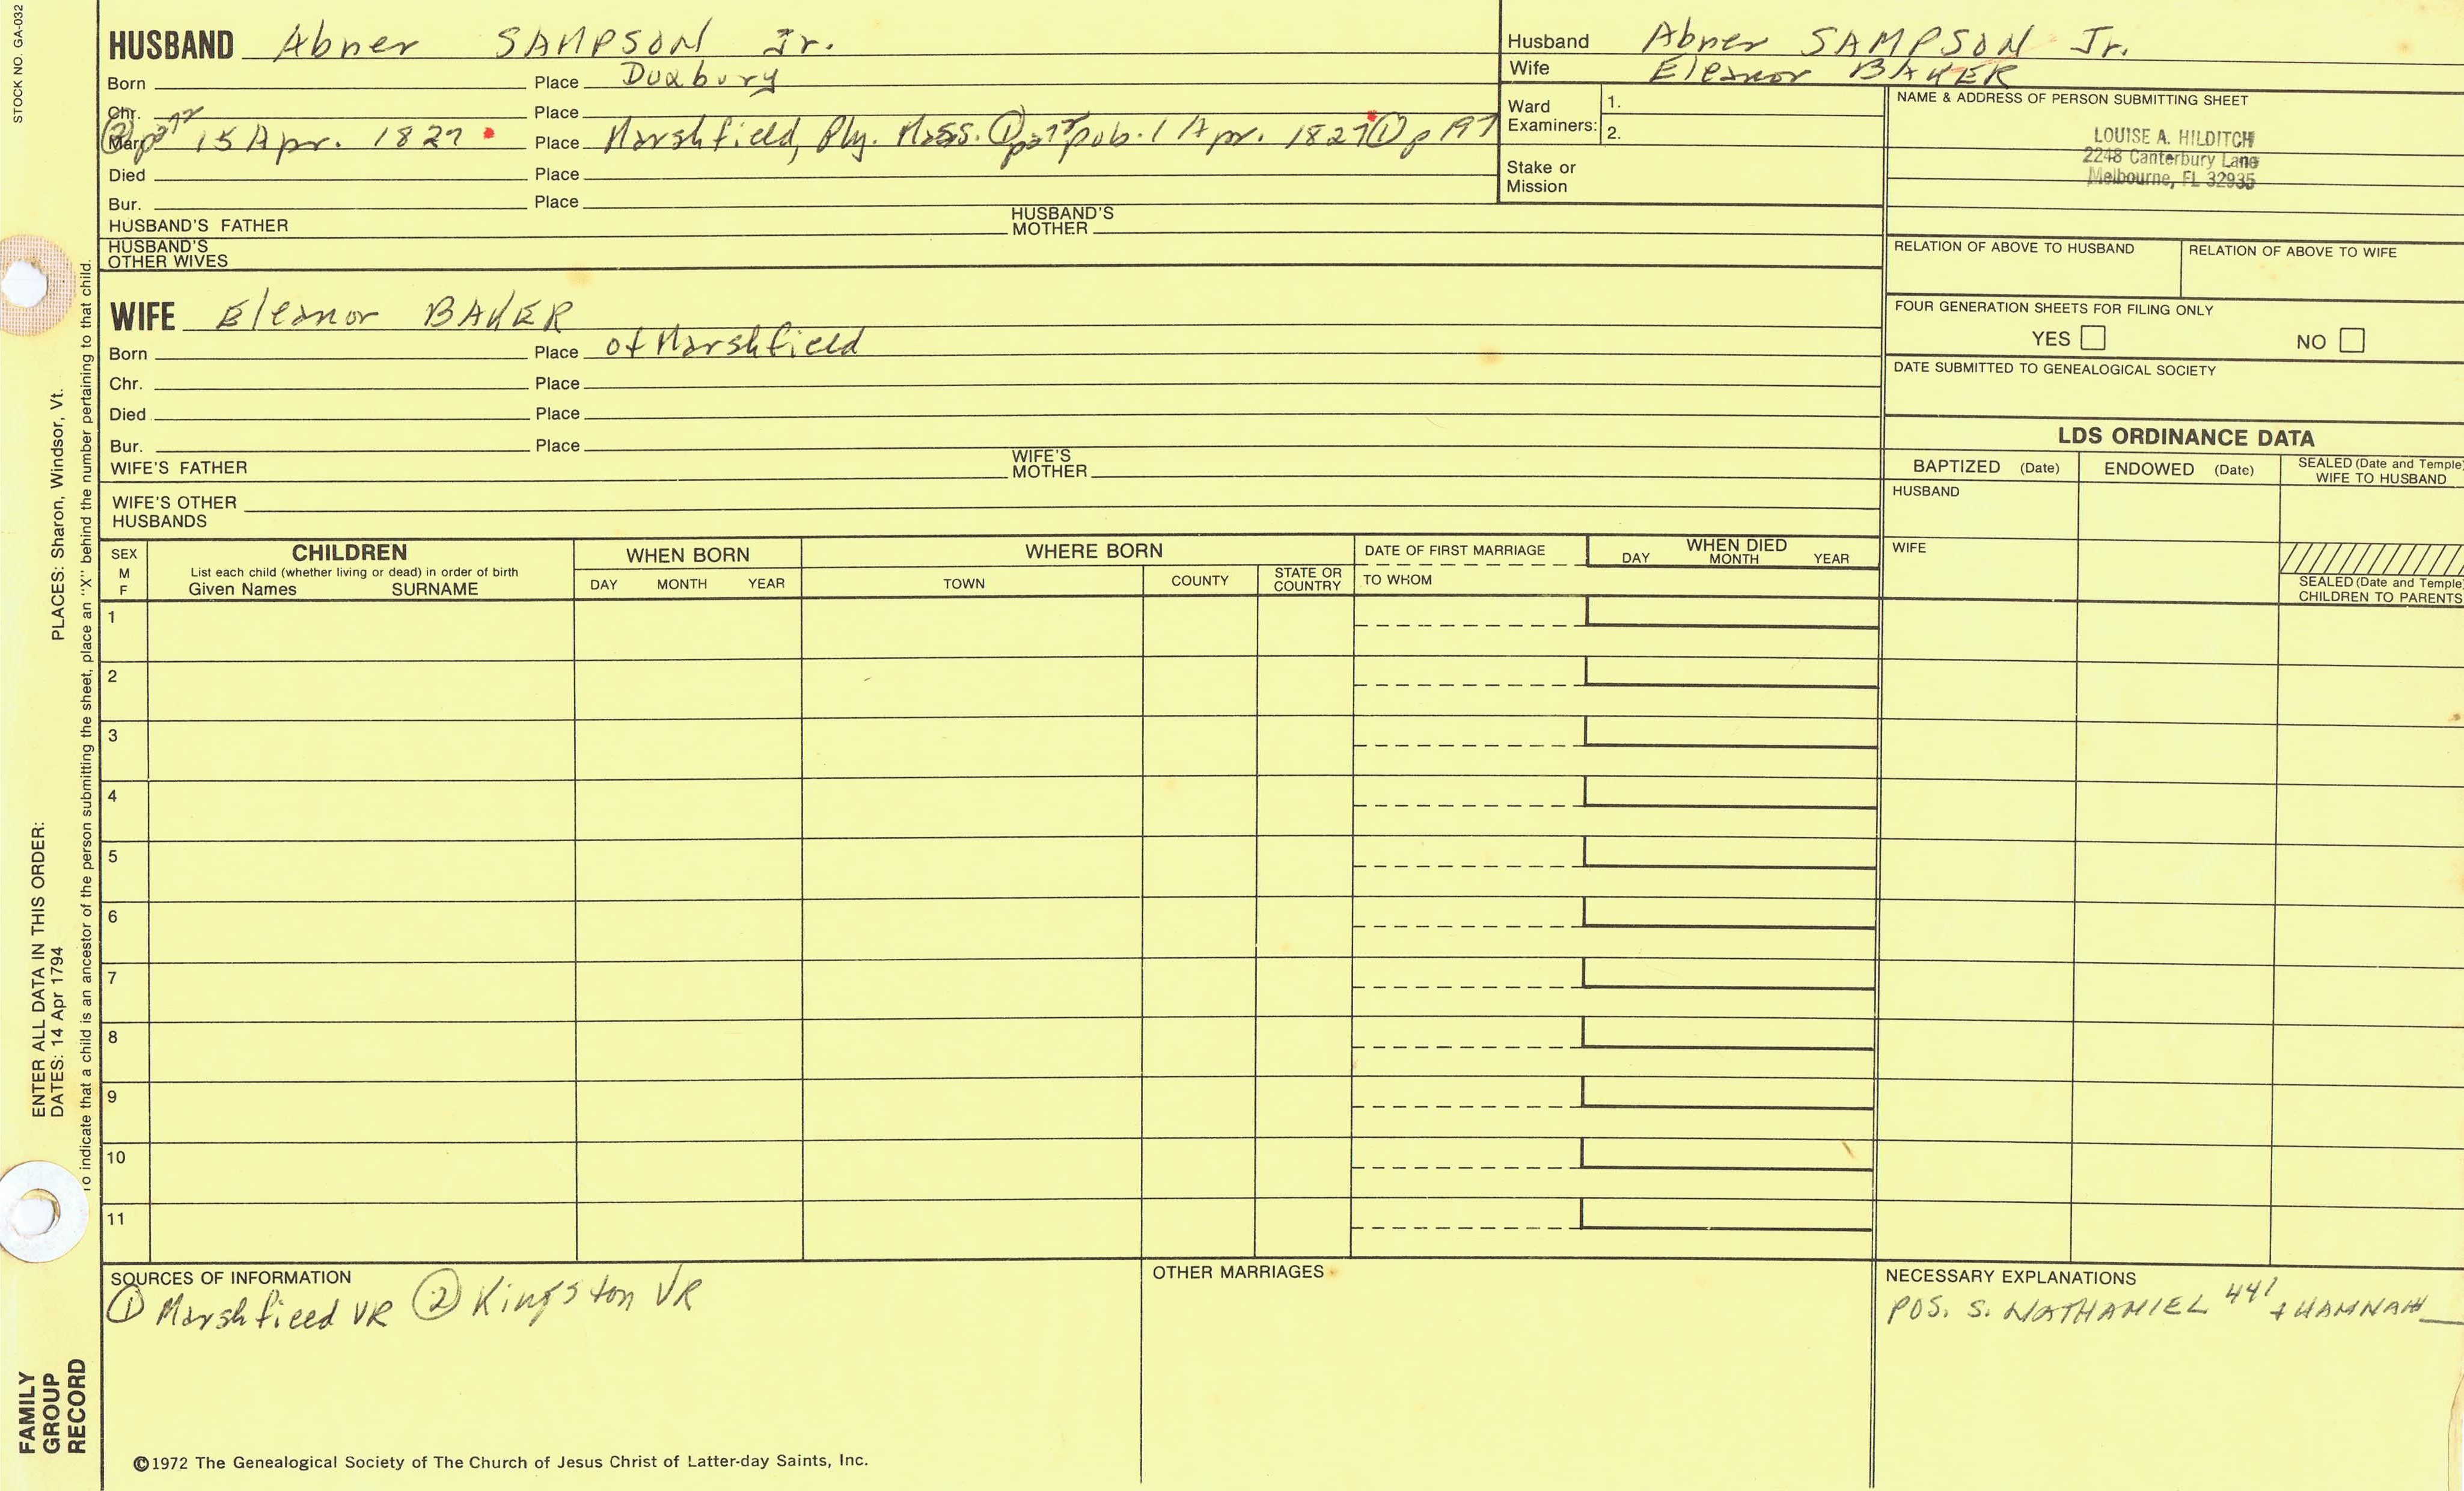 STOCK NO. GA-032
HUSBAND Abner SAMPSON Jr.
Born Place Duxbury
Chr. Place
Marr. 15 Apr. 1827 Place Marshfield, Ply. Mass. ① pub. 1 Apr. 1827 ① p 197
Died Place
Bur. Place
HUSBAND'S FATHER HUSBAND'S MOTHER
HUSBAND'S OTHER WIVES
Husband Abner SAMPSON Jr.
Wife Eleanor BAKER
Ward Examiners: 1.
2.
Stake or Mission
NAME & ADDRESS OF PERSON SUBMITTING SHEET
LOUISE A. HILDITCH
2248 Canterbury Lane
Melbourne, FL 32935
RELATION OF ABOVE TO HUSBAND RELATION OF ABOVE TO WIFE
FOUR GENERATION SHEETS FOR FILING ONLY
YES NO
DATE SUBMITTED TO GENEALOGICAL SOCIETY
WIFE Eleanor BAKER
Born Place of Marshfield
Chr. Place
Died Place
Bur. Place
WIFE'S FATHER WIFE'S MOTHER
WIFE'S OTHER HUSBANDS
LDS ORDINANCE DATA
BAPTIZED (Date) ENDOWED (Date) SEALED (Date and Temple) WIFE TO HUSBAND
HUSBAND
WIFE
SEALED (Date and Temple) CHILDREN TO PARENTS
SEX M F
CHILDREN
List each child (whether living or dead) in order of birth
Given Names SURNAME
WHEN BORN
DAY MONTH YEAR
WHERE BORN
TOWN COUNTY STATE OR COUNTRY
DATE OF FIRST MARRIAGE
TO WHOM
WHEN DIED
DAY MONTH YEAR
1
2
3
4
5
6
7
8
9
10
11
SOURCES OF INFORMATION
① Marshfieed VR ② Kingston VR
OTHER MARRIAGES
NECESSARY EXPLANATIONS
POS. S. NATHANIEL 441 + HANNAH
©1972 The Genealogical Society of The Church of Jesus Christ of Latter-day Saints, Inc.
FAMILY
GROUP
RECORD
ENTER ALL DATA IN THIS ORDER:
DATES: 14 Apr 1794 PLACES: Sharon, Windsor, Vt.
To indicate that a child is an ancestor of the person submitting the sheet, place an "X" behind the number pertaining to that child.